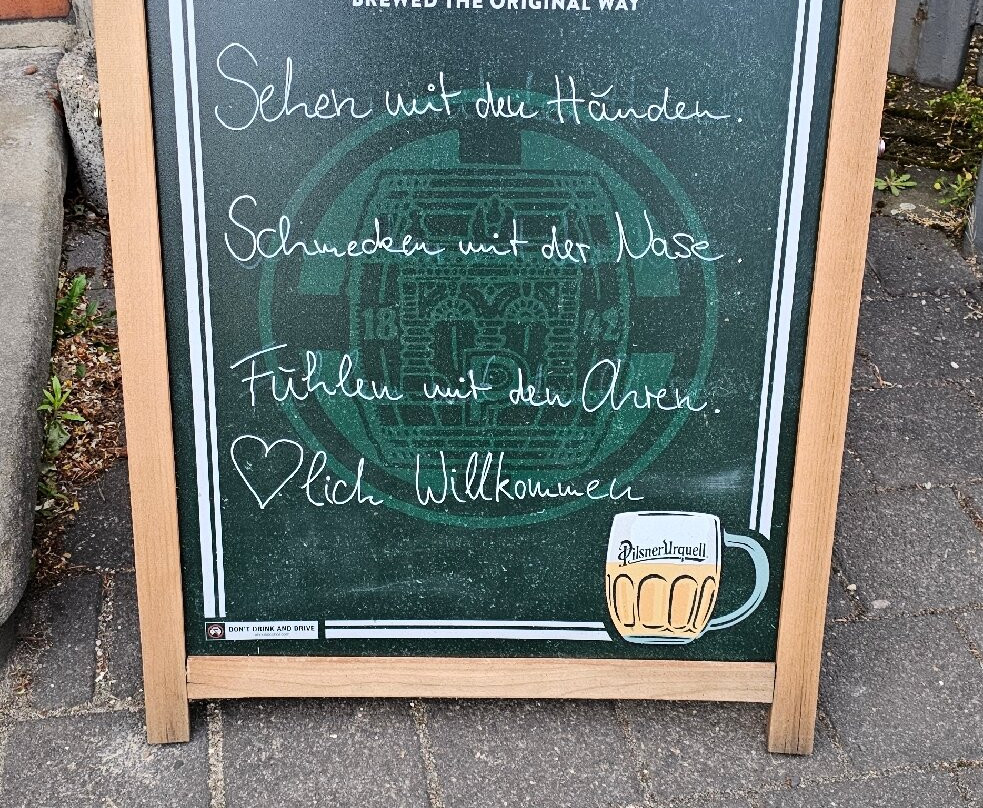 BREWED THE ORIGINAL WAY
Sehen mit den Händen.
Schmecken mit der Nase.
Fühlen mit den Ohren.
♡lich Willkommen
18 42
Pilsner Urquell
DON'T DRINK AND DRIVE